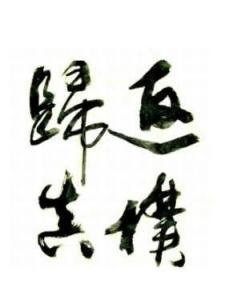 返璞
歸真